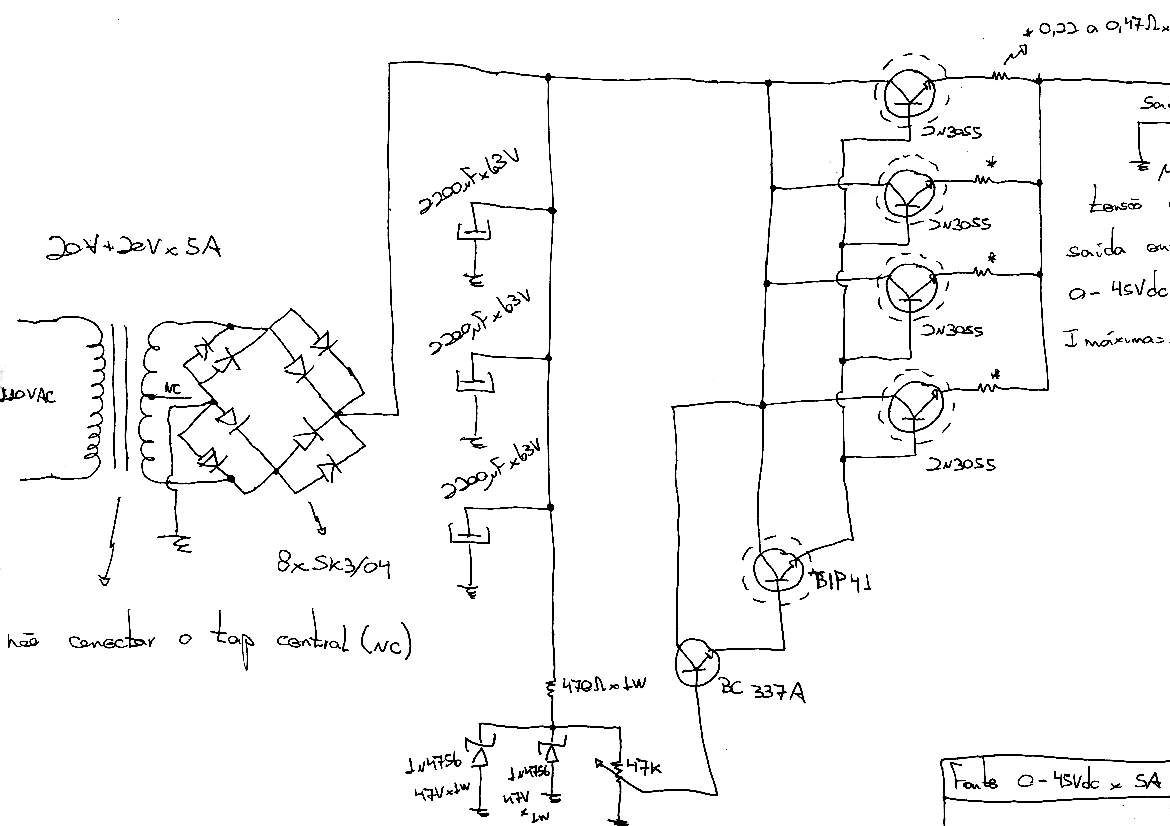 * 0,22 a 0,47Ω x
2N3055
2N3055
2N3055
2N3055
*
*
*
2200µF x 63V
2200µF x 63V
2200µF x 63V
20V+20V x 5A
110VAC
NC
8x SK3/04
não conectar o tap central (NC)
tensão
saída
0 - 45Vdc
I máxima =
TIP41
BC 337A
470Ω x 1W
1N4756
47V x 1W
1N4756
47V
x 1W
47K
Fonte 0-45Vdc x 5A